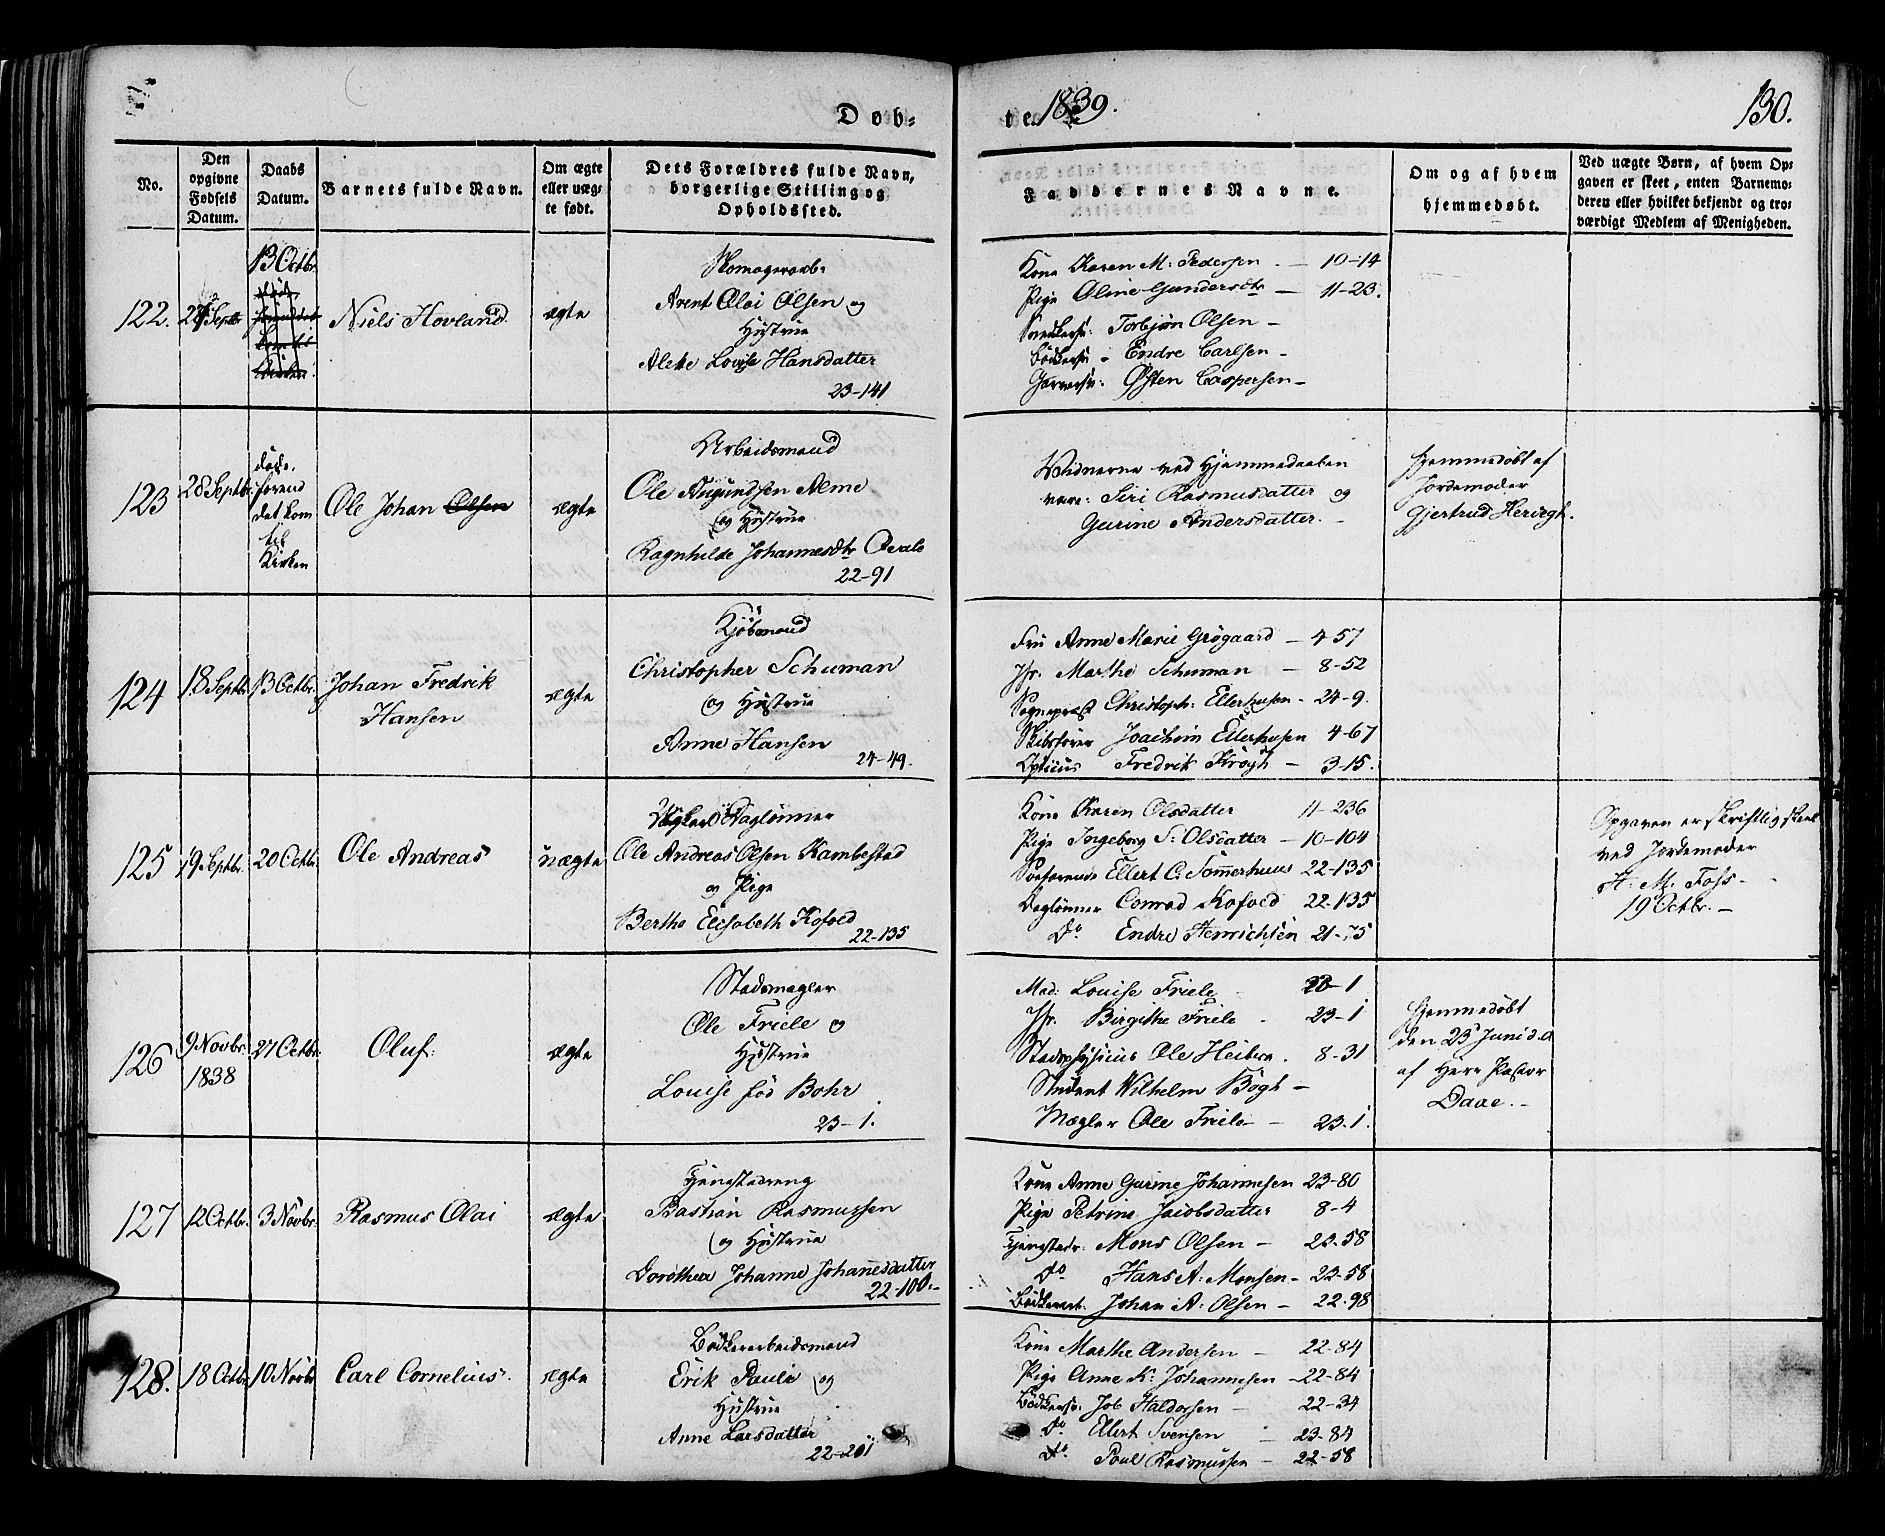 Døb-
te. 1839.
130.
No.
Den opgivne Fødsels Datum.
Daabs Datum.
Barnets fulde Navn.
Om ægte eller uægte født.
Dets Forældres fulde Navn, borgerlige Stilling og Opholdssted.
Faddernes Navne.
Om og af hvem hjemmedøbt.
Ved uægte Børn, af hvem Opgaven er skeet, enten Barnemoderen eller hvilket bekjendt og troværdigt Medlem af Menigheden.
122.
Septbr
13 Octbr.
Niels Hovland
ægte
Arent Olai Olsen og
Hustrue
Alette Lovise Hansdatter
23-141
Kone Karen M: Pedersen - 10-14
Pige Oline Gundersdtr - 11-23.
Torbjøn Olsen -
Endre Carlsen -
Østen Caspersen -
123
28 Septbr.
døde
forend
det kom
til
Kirken
Ole Johan Olsen
ægte
Arbeidsmand
Ole Augundsen Alme
og Hustrue
Ragnhilde Johannesdtr
22-91
Vidnerne ved Hjemmedaaben
vare: Siri Rasmusdatter og
Gurine Andersdatter. -
Hjemmedøbt af
Jordemoder
Gjertrud Herregh.
124
18 Septbr.
13 Octbr.
Johan Fredrik
Hansen
ægte
Kjøbmand
Christopher Schuman
og Hustrue
Anne Hansen
24-49.
Fru Anne Marie Grøgaard - 4-57
Jfr. Marthe Schuman - 8-52
Sognepræst Christoph: Ellerhusen - 24-9.
Skibsfører Joachim Ellerhusen 4-67
Fredrik Krogh - 3-15.
125
19 Septbr.
20 Octbr.
Ole Andreas
uægte
Daglønner
Ole Andreas Olsen Kambestad
og Pige
Berthe Elisabeth Kofoed
22-135
Kone Karen Olsdatter 11-236
Pige Ingeborg S: Olsdatter - 10-104
Søefarende Ellert C. Sommerhuus 22-135
Daglønner Conrad Kofoed 22-135
Do Endre Henrichsen 21-75
Opgaven er skriftlig skeet
ved Jordemoder
H. M. Foss -
19 Octbr. -
126
9 Novbr.
1838
27 Octbr.
Oluf.
ægte
Stadsmægler
Ole Friele og
Hustrue
Louise fød Bohr
23-1.
Mad: Louise Friele 23-1
Jfr. Birgithe Friele - 23-1
Stadsphysicus Ole Heiberg. 8-31
Student Wilhelm Bøgh -
Mægler Ole Friele - 23.1.
Hjemmedøbt
den 23 Juni d.A
af Herr Pastor
Daae. -
127
12 Octbr.
3 Novbr.
Rasmus Olai
ægte
Tjenestedreng
Bastian Rasmussen
og Hustrue
Dorothea Johanne Johannesdatter
22-100. -
Kone Anne Gurine Johannesen 23-80
Pige Petrine Jacobsdatter 8-4
Tjenestedr. Mons Olsen - 23-58
Do Hans A: Monsen - 23-58
Bødkerarb. Johan A: Olsen - 22-98
128.
18 Octbr.
10 Novbr
Carl Cornelius.
ægte
Bødkerarbeidsmand
Erik Pauli og
Hustrue
Anne Larsdatter
22-201
Kone Marthe Andersen - 22-84
Pige Anne K: Johannesen - 22-84
Bødkersv. Job Haldorsen - 22-34
Do Ellert Svensen - 23-84
Do Poul Rasmussen - 22-58